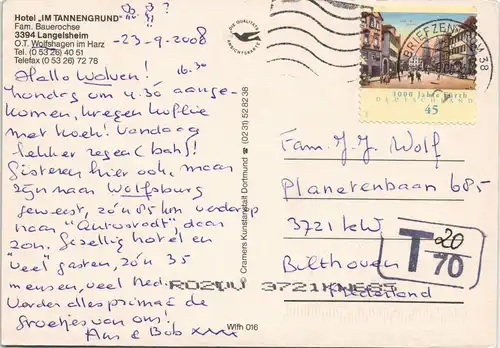 Hotel „IM TANNENGRUND"
Fam. Bauerochse
3394 Langelsheim
O.T. Wolfshagen im Harz
Tel. (0 53 26) 40 51
Telefax (0 53 26) 72 78
-23-9-2008
Hallo Wolven!
Maandag om 4.30 aange-
komen, kregen koffie
met koek! Vandaag
lekker regen (bah)!
Gisteren hier ook, maar
zijn naar Wolfsburg
geweest, zo'n 85 km verderop
naar "Autostadt", daar
zon. Gezellig hotel en
"veel" gasten, zo'n 35
mensen, veel Ned.
Verder alles prima! de
Groetjes van ons!
Ans & Bob xxxx
DIE QUALITÄTS
ANSICHTSKARTE
Cramers Kunstanstalt Dortmund ☎ (0231) 52 82 38
Wlfh 016
BRIEFZENTRUM 38
1000 Jahre Fürth
DEUTSCHLAND
45
Fam. J.J. Wolf
Planetenbaan 685-
3721 KW
Bilthoven
Nederland
T 20
70
3721KN685